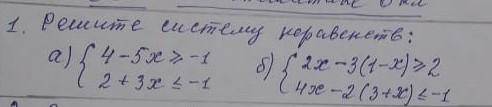 1. Решите систему неравенств:
а) { 4-5x ≥ -1 б) { 2x-3(1-x) ≥ 2
2+3x ≤ -1 4x-2(3+x) ≤ -1